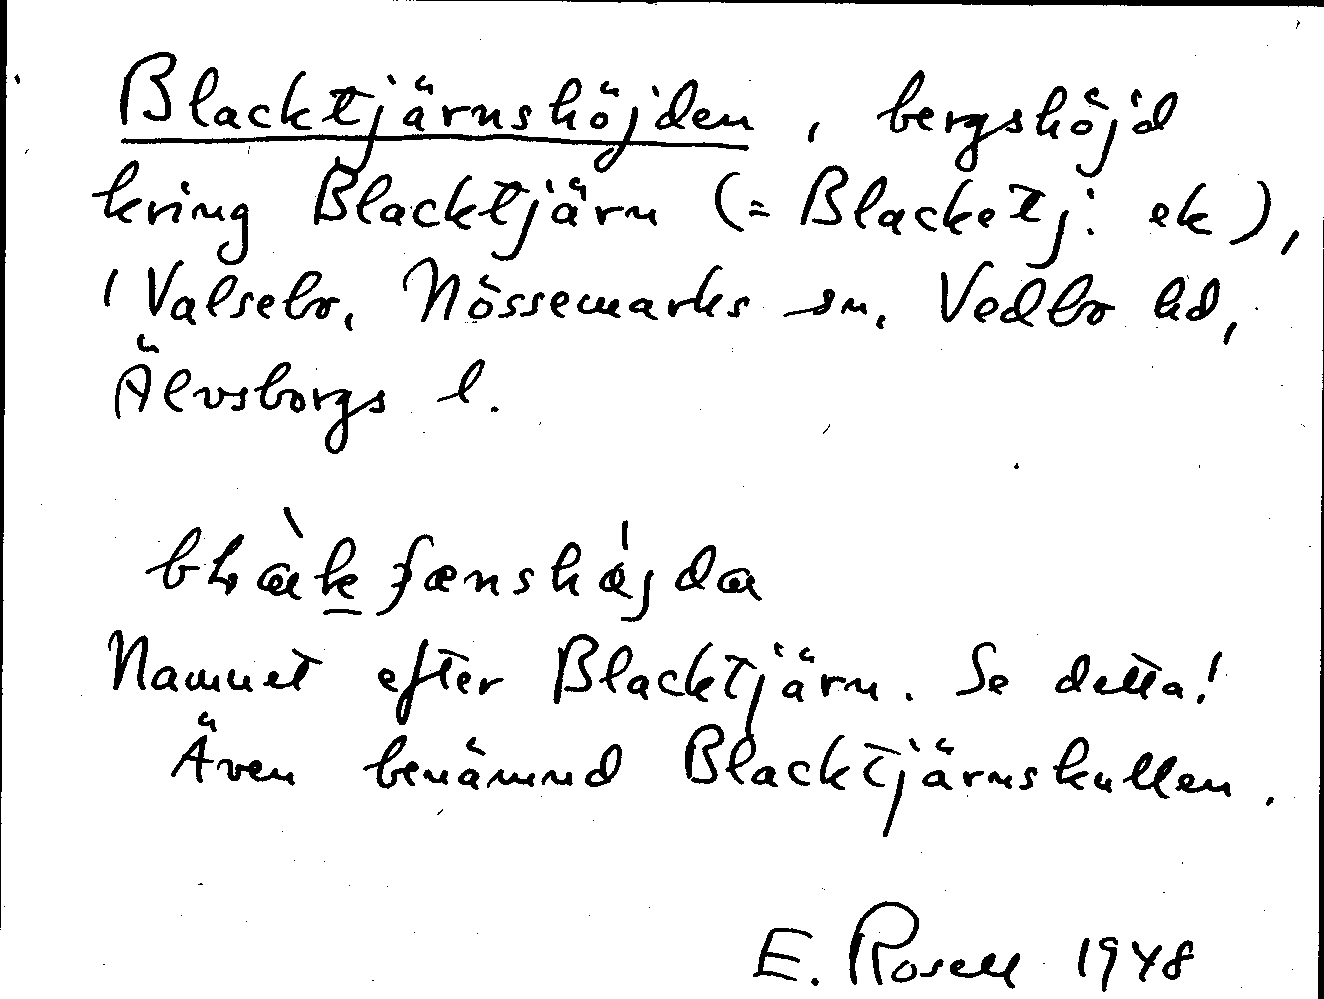 Blacktjärnshöjden, bergshöjd
kring Blacktjärn (= Blacketj: ek),
i Valsebo, Nössemarks sn, Vedbo hd,
Älvsborgs l.
Namnet efter Blacktjärn. Se detta!
Även benämnd Blacktjärnskullen.
E. Rosell 1948